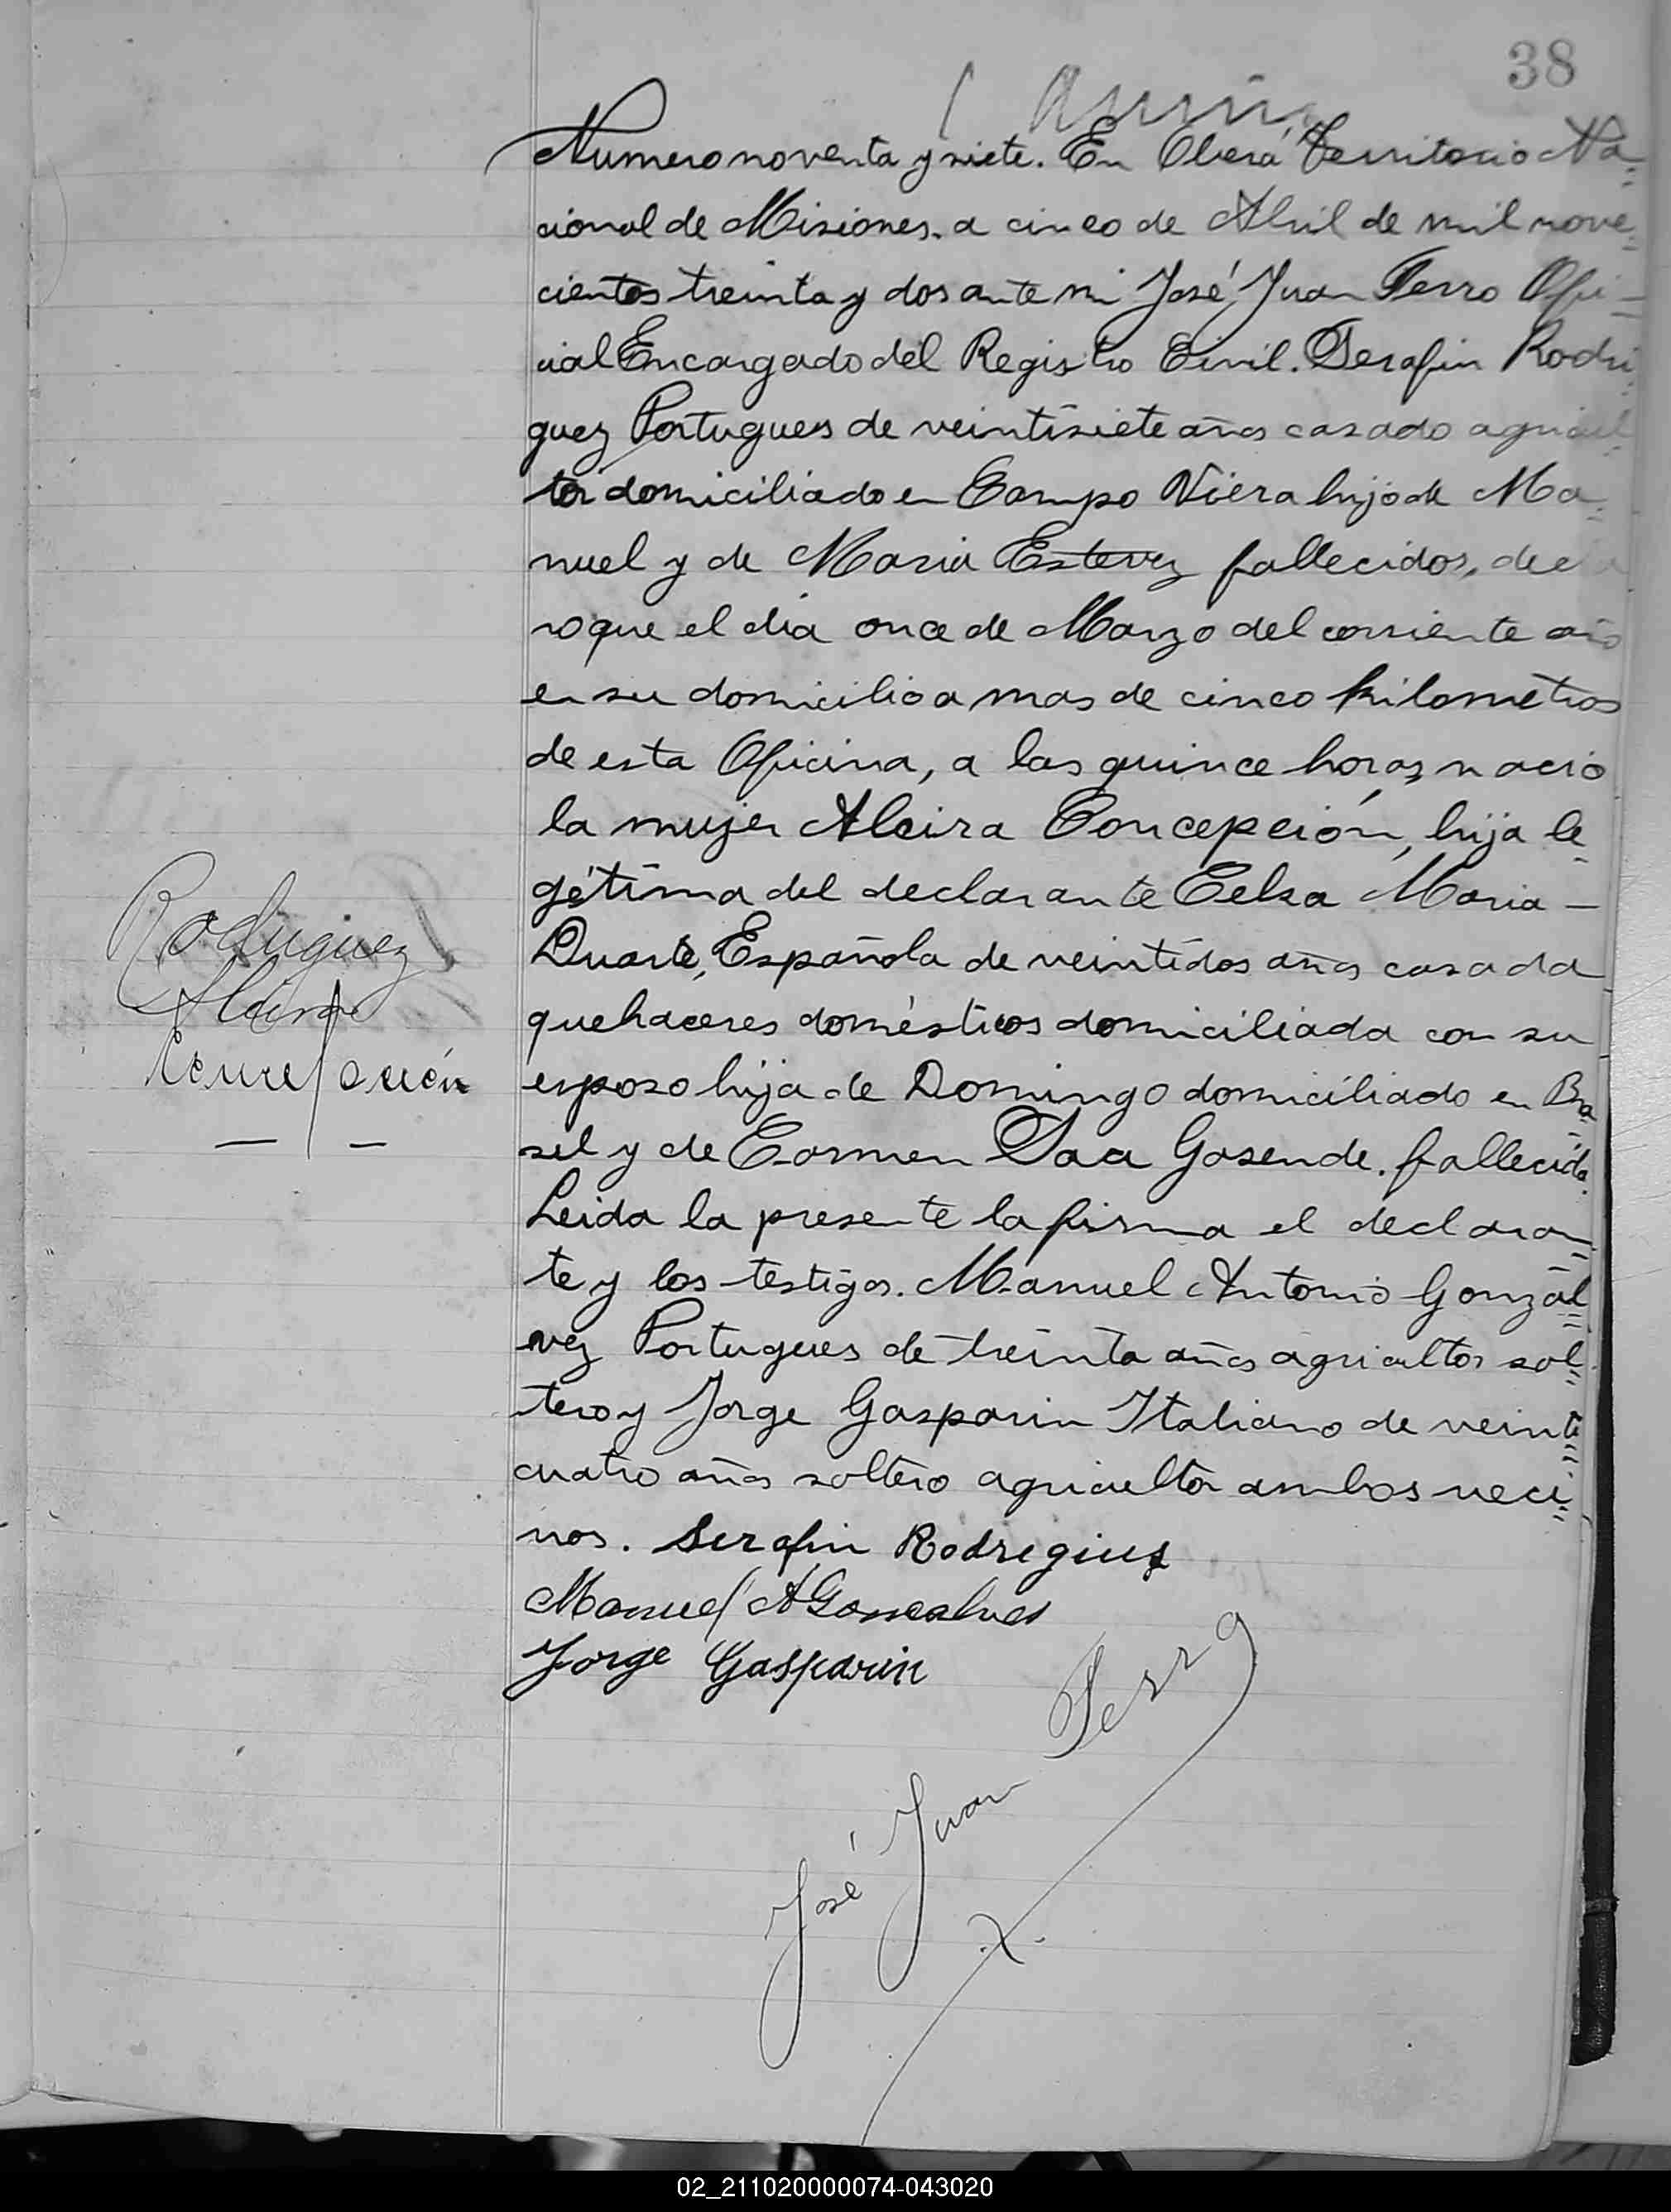 38
Numero noventa y siete. En Oberá Territorio Na=
cional de Misiones. a cinco de Abril de mil nove=
cientos treinta y dos ante mi José Juan Ferro Ofi-
cial Encargado del Registro Civil. Serafin Rodri
guez Portugues de veintisiete años casado agricul
tor domiciliado en Campo Viera hijo de Ma=
nuel y de Maria Estevez fallecidos, decla
ro que el dia once de Marzo del corriente año
en su domicilio a mas de cinco kilometros
de esta Oficina, a las quince horas, nacio
la mujer Alcira Concepción, hija le=
gitima del declarante Celsa Maria —
Duarte, Española de veintidos años casada
quehaceres domésticos domiciliada con su
esposo hija de Domingo domiciliado en Bra
sil y de Carmen Saa Gosende. fallecida.
Leida la presente la firma el declaran=
te y los testigos. Manuel Antonio Gonzal=
vez Portugues de treinta años agricultor sol=
tero y Jorge Gasparin Italiano de veinti=
cuatro años soltero agricultor ambos veci=
nos. Serafin Rodregiues
Manuel A Gonsalves
Jorge Gasparin
José Juan Ferro
Rodriguez
Alcira
Concepción
02_211020000074-043020